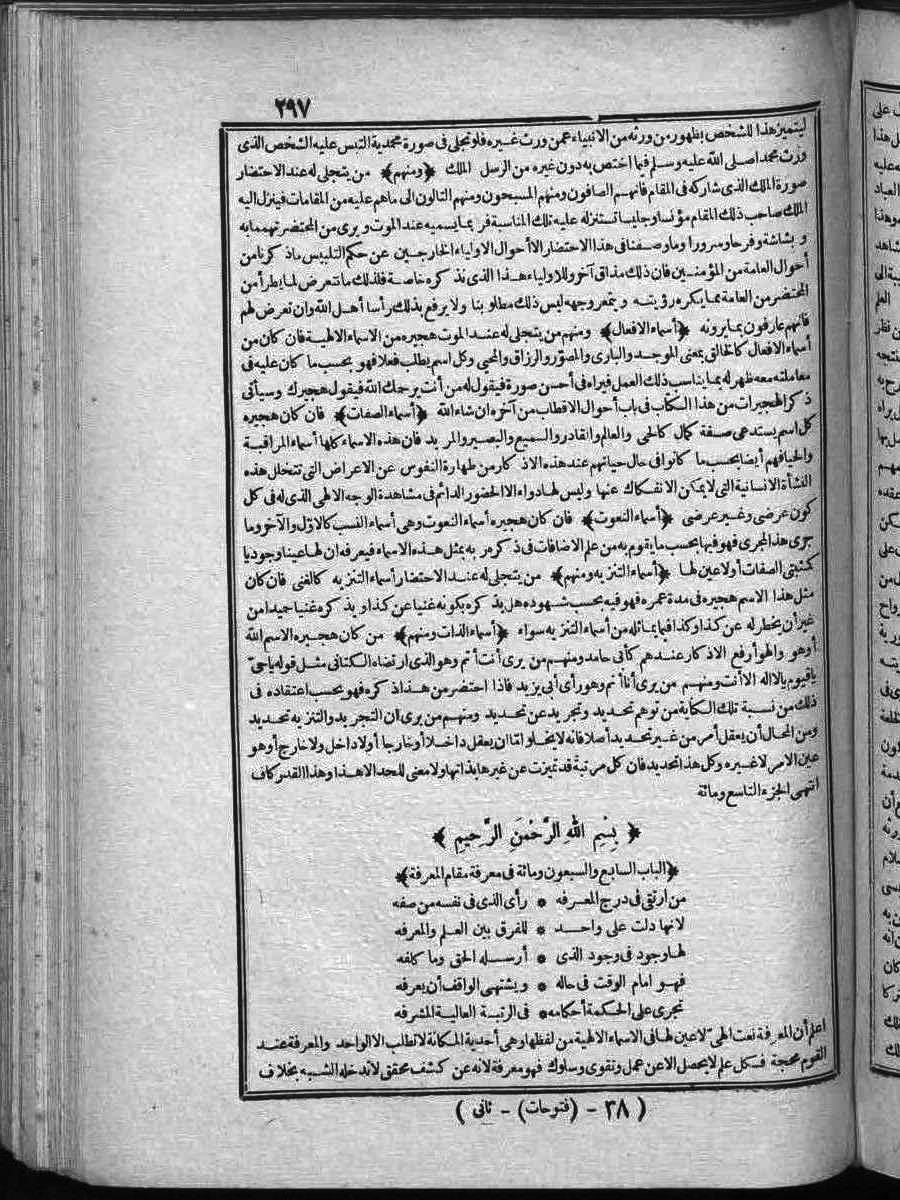 ٢٩٧
ليتميز هذا الشخص بظهور من ورثه من الانبياء عمن ورث غيره فلو تجلى فى صورة محمدية التبس عليه الشخص الذى
ورث محمدا صلى الله عليه وسلم فيما اختص به دون غيره من الرسل الملك ﴿ومنهم﴾ من يتجلى له عند الاحتضار
صورة الملك الذى شاركه فى المقام فانهم الصافون ومنهم المسبحون ومنهم التالون الى ما هم عليه من المقامات فينزل اليه
الملك صاحب ذلك المقام مؤنسا وجليسا تستنزله عليه تلك المناسبة فربما يسميه عند الموت ويرى من المحتضر تهمما به
وبشاشة وفرحا وسرورا وما وصفنا فى هذا الاحتضار الا أحوال الاولياء الخارجين عن حكم التلبيس ماذكرنا من
أحوال العامة من المؤمنين فان ذلك مذاق آخر وللاولياء هذا الذى نذكره خاصة فلذلك ما نتعرض لما يطرأ من
المحتضر من العامة مما يكره رؤيته ويتمعر وجهه ليس ذلك مطلوبنا ولا يرفع بذلك رأسا أهل الله وان تعرض لهم
فانهم عارفون بما يرونه ﴿أسماء الافعال﴾ ومنهم من يتجلى له عند الموت هجيره من الاسماء الالهية فان كان من
أسماء الافعال كالخالق بمعنى الموجد والبارى والمصور والرزاق والمحيى وكل اسم يطلب فعلا فهو بحسب ما كان عليه فى
معاملته معه ظهر له بما يناسب ذلك العمل فيراه فى أحسن صورة فيقول له من أنت يرحمك الله فيقول هجيرك وسيأتى
ذكر الهجيرات من هذا الكتاب فى باب أحوال الاقطاب من آخره ان شاء الله ﴿أسماء الصفات﴾ فان كان هجيره
كل اسم يستدعى صفة كمال كالحى والعالم والقادر والسميع والبصير والمريد فان هذه الاسماء كلها أسماء المراقبة
والحيا فهم أيضا بحسب ما كانوا فى حال حياتهم عند هذه الاذكار من طهارة النفوس عن الاعراض التى تتخلل هذه
النشأة الانسانية التى لا يمكن الانفكاك عنها وليس لها دواء الا الحضور الدائم فى مشاهدة الوجه الالهى الذى له فى كل
كون عرضى وغير عرضى ﴿أسماء النعوت﴾ فان كان هجيره أسماء النعوت وهى أسماء النسب كالاول والآخر وما
جرى هذا المجرى فهو فيها بحسب ما يقوم به من علم الاضافات فى ذكر ربه بمثل هذه الاسماء فيعرفه ان لها عينا وجوديا
كمثبتى الصفات أولا عين لها ﴿أسماء التنزيه ومنهم﴾ من يتجلى له عند الاحتضار أسماء التنزيه كالغنى فان كان
مثل هذا الاسم هجيره فى مدة عمره فهو فيه بحسب شهوده هل يذكره بكونه غنيا عن كذا ويذكره غنيا حيدا من
غير أن يخطر له عن كذا وكذا فيما يماثله من أسماء التنزيه سواء ﴿أسماء الذات ومنهم﴾ من كان هجيره الاسم الله
أو هو والهو أرفع الاذكار عندهم كأبى حامد ومنهم من يرى أنت أتم وهو الذى ارتضاه الكتانى مثل قوله ياحى
ياقيوم يالااله الا أنت ومنهم من يرى أنا أتم وهو رأى أبى يزيد فاذا احتضر من هذا ذكره فهو بحسب اعتقاده فى
ذلك من نسبة تلك الكناية من توهم تحديد وتجريد عن تحديد ومنهم من يرى ان التجريد والتنزيه تحديد
ومن المحال أن يعقل أمر من غير تحديد أصلا فانه لا يخلو اما ان يعقل داخلا أو خارجا أولا داخل ولا خارج أو هو
عين الامر لا غيره وكل هذا تحديد فان كل مرتبة قد تميزت عن غيرها بذاتها ولا معنى للحد الا هذا وهذا القدر كاف
انتهى الجزء التاسع ومائة
﴿ بِسْمِ اللهِ الرَّحْمَنِ الرَّحِيمِ ﴾
﴿الباب السابع والسبعون ومائة فى معرفة مقام المعرفة﴾
من ارتقى فى درج المعرفه * رأى الذى فى نفسه من صفه
لانها دلت على واحد * للفرق بين العلم والمعرفه
لها وجود فى وجود الذى * أرسله الحق وما كلفه
فهو امام الوقت فى حاله * ويشتهى الواقف أن يعرفه
تجرى على الحكمة أحكامه * فى الرتبة العالية المشرفه
اعلم أن المعرفة نعت الهى لا عين لها فى الاسماء الالهية من لفظها وهى أحدية المكانة لا تطلب الا الواحد والمعرفة عند
القوم محجة فكل علم لا يحصل الا عن عمل وتقوى وسلوك فهو معرفة لانه عن كشف محقق لا تدخله الشبه بخلاف
( ٣٨ - (فتوحات) - ثانى )